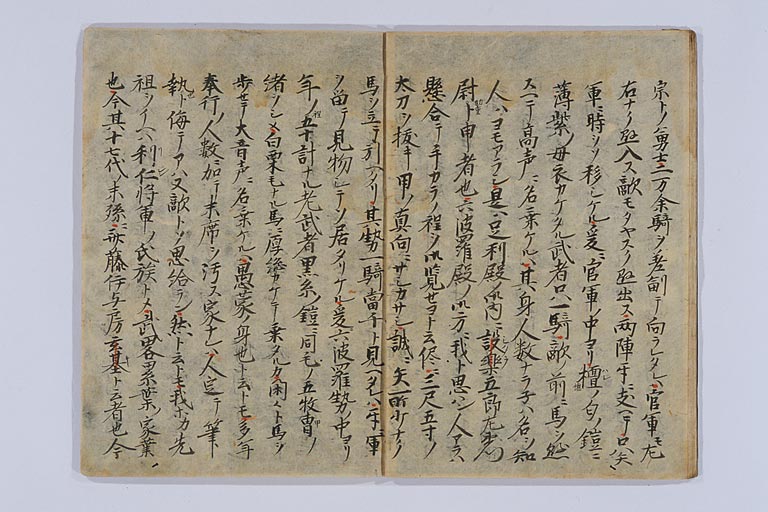 宗トノ勇士二万余騎ヲ差副テ向ラレタレハ官軍モ左
右ナク不入ス敵モタヤスク不出ス両陣牢ニ支ヘテロ矢ニ
軍ニ時ヲソ移シケル爰ニ官軍ノ中ヨリ櫨ノ匂ノ鎧ニ
薄紫ノ母衣カケタル武者只一騎敵ノ前ニ馬ヲ懸
スヘテ高声ニ名乗ケルハ其身人数ナラ子ハ名ヲ知
人ハヨモアラシ是ハ足利殿ノ御内ニ設楽五郎左衛門
尉ト申者也六波羅殿ノ御方ニ我ト思ハン人アラハ
懸合テ手カラノ程ヲ御覧セヨト云侭ニ三尺五寸ノ
太刀ヲ抜キ甲ノ真向ニサシカサシ誠ニ矢所少ナク
馬ヲ立テ引ヘタリ其勢一騎当千ト見ヘタレハ牢軍
ヲ留テ見物シテソ居タリケル爰六波羅勢ノ中ヨリ
年ノ程五十計ナル老武者黒糸ノ鎧ニ同毛ノ五枚冑ノ
緒ヲシメ白栗毛ナル馬ニ厚総カケテ乗タルカ閑ト馬ヲ
歩セテ大音声ニ名乗ケルハ愚蒙ノ身也ト云トモ多年
奉行ノ人数ニ加テ末席ヲ汚ス家ナレハ人定テ筆
執ト侮テアハヌ敵トソ思給ラン然ト云トモ我カ先
祖ヲイヘハ利仁将軍ノ氏族トメ武畧累葉ノ家業
也今其十七代ノ末孫ニ斎藤伊与房玄基ト云者也今